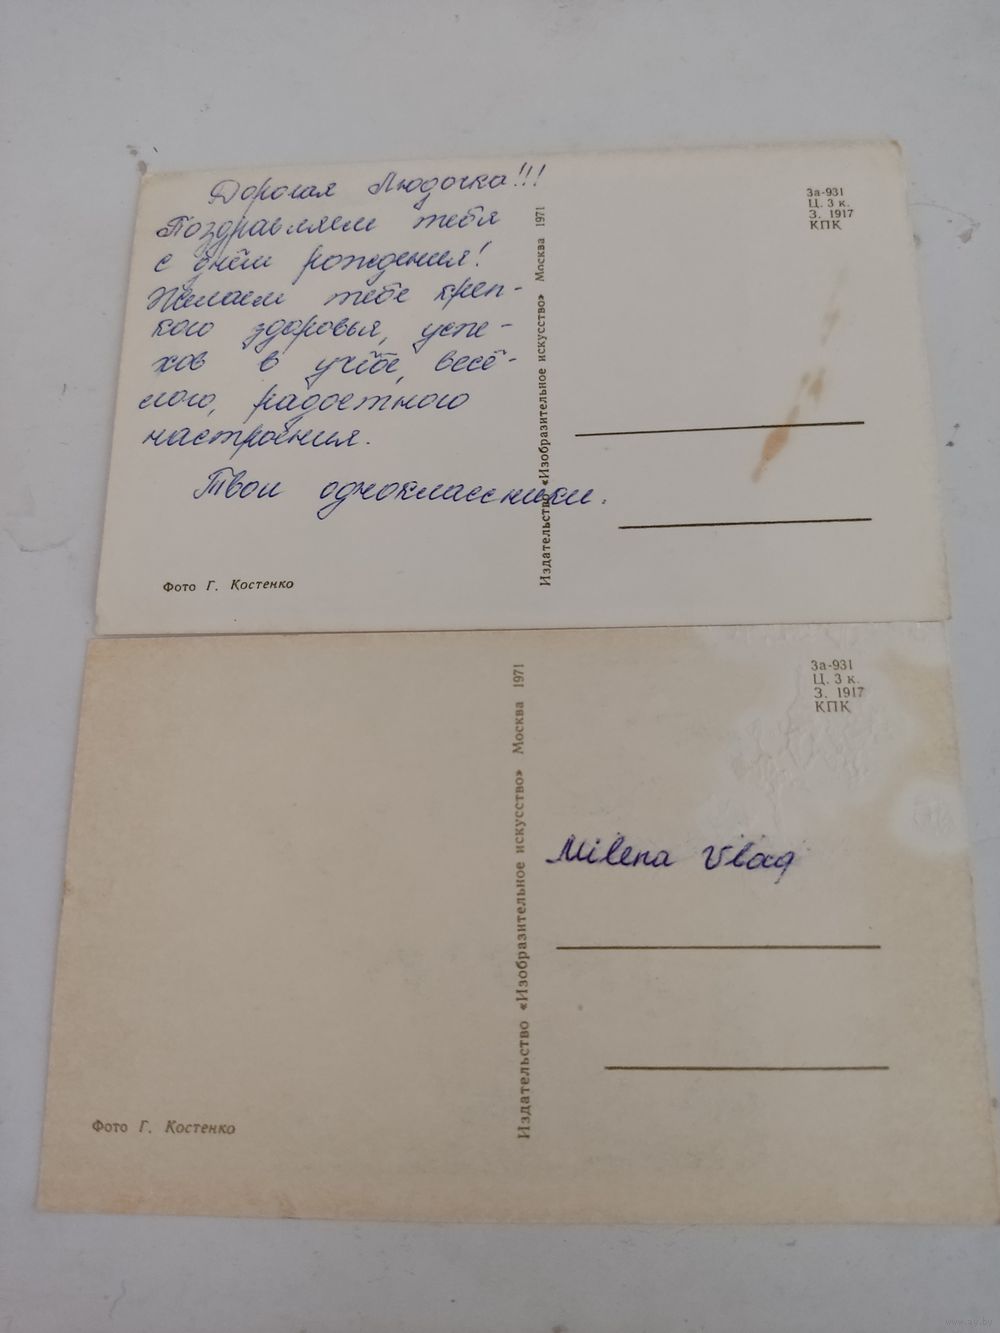 Дорогая Людочка!!!
Поздравляем тебя
с днём рождения!
Желаем тебе креп-
кого здоровья, успе-
хов в учёбе, весё-
лого, радостного
настроения.
Твои одноклассники.
Фото Г. Костенко
Издательство «Изобразительное искусство» Москва 1971
За-931
Ц. 3 к.
З. 1917
КПК
Фото Г. Костенко
Издательство «Изобразительное искусство» Москва 1971
За-931
Ц. 3 к.
З. 1917
КПК
Milena Vlad
www.ay.by